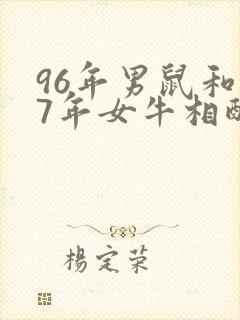 96年男鼠和
7年女牛相配
楊定荣